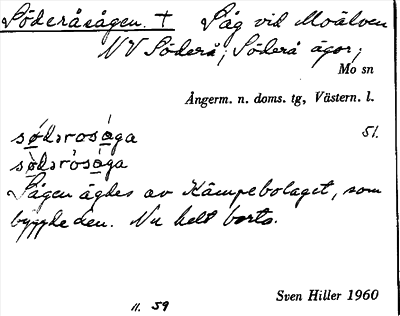 Söderåsågen. † Låg vid Moälven
NV Söderå; Söderå ägor;
Mo sn
Ångerm. n. doms. tg, Västern. l.
sødərosåga 51.
sødərosåga
Sågen ägdes av Kämpebolaget, som
byggde den. Nu helt borta.
Sven Hiller 1960
11. 59